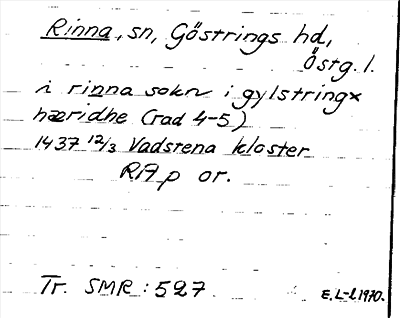 Rinna, sn, Göstrings hd,
Östg. l.
i rinna sokn i gylstringx
hæridhe (rad 4-5)
1437 12/3 Vadstena kloster
RAp or.
Tr. SMR: 527
E. L-l 1970.